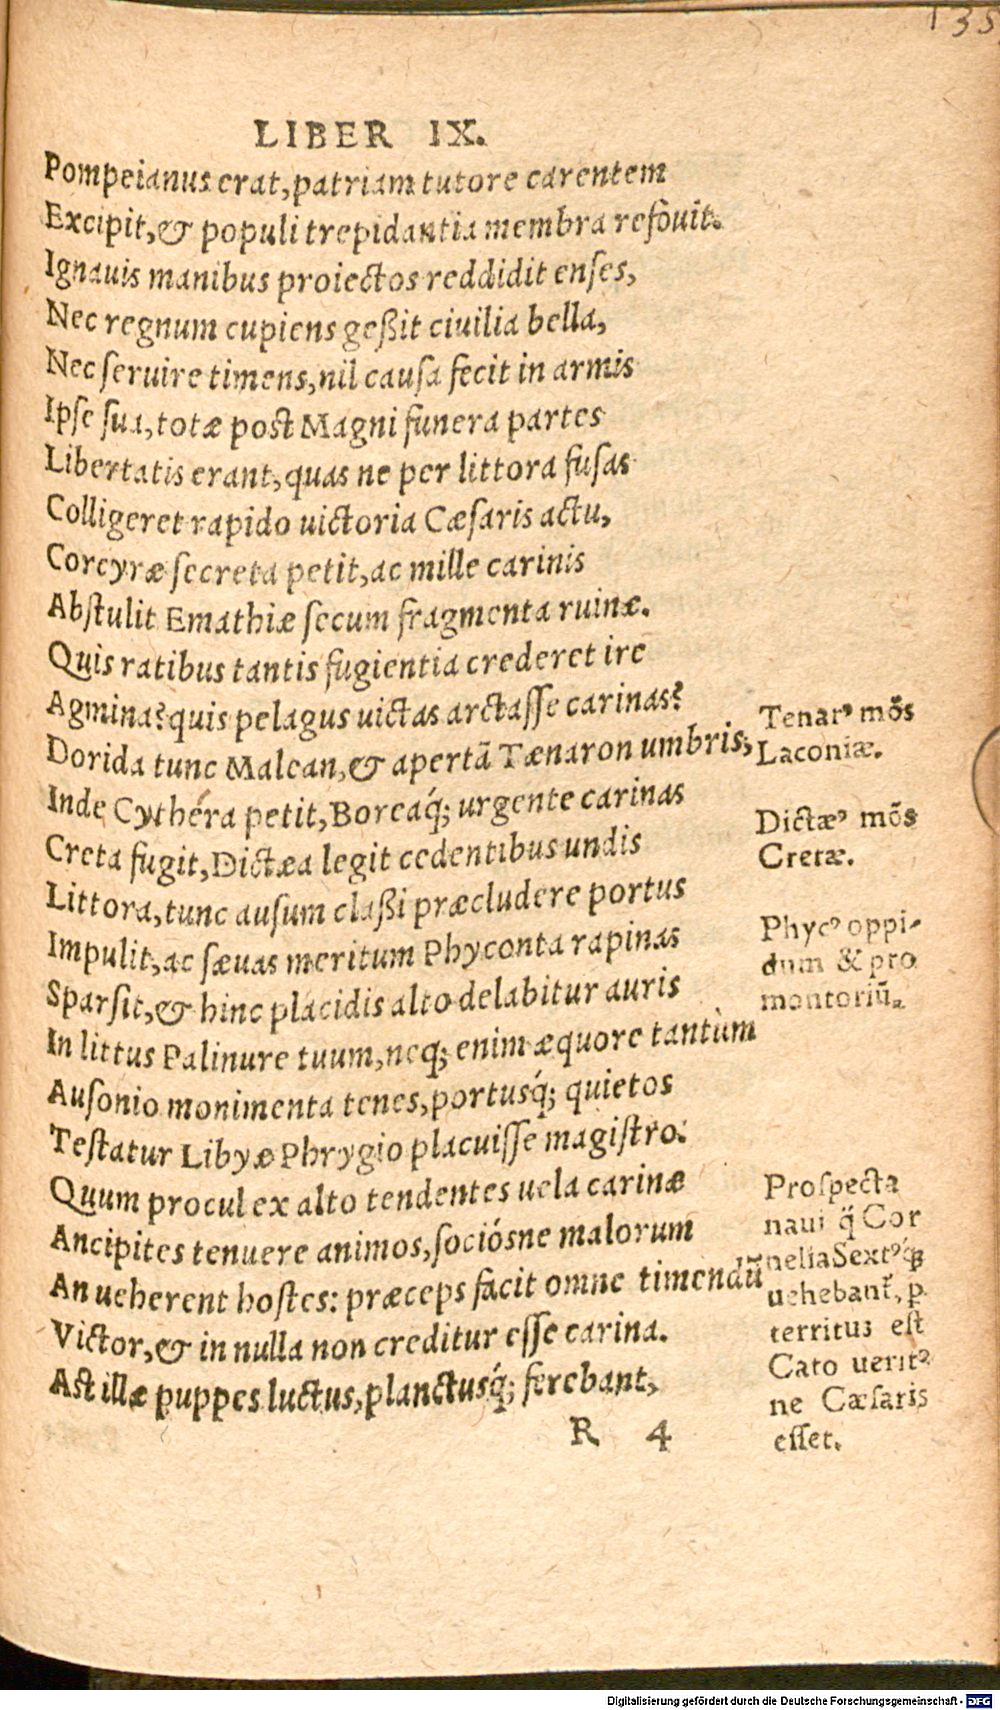 135
LIBER IX.
Pompeianus erat, patriam tutore carentem
Excipit, & populi trepidantia membra refouit.
Ignauis manibus proiectos reddidit enses,
Nec regnum cupiens geßit ciuilia bella,
Nec seruire timens, nil causa fecit in armis
Ipse sua, totæ post Magni funera partes
Libertatis erant, quas ne per littora fusas
Colligeret rapido uictoria Cæsaris actu,
Corcyræ secreta petit, ac mille carinis
Abstulit Emathiæ secum fragmenta ruinæ.
Quis ratibus tantis fugientia crederet ire
Agmina? quis pelagus uictas arctasse carinas?
Dorida tunc Malean, & apertā Tænaron umbris,
Inde Cythéra petit, Boreaq́; urgente carinas
Creta fugit, Dictæa legit cedentibus undis
Littora, tunc ausum claßi præcludere portus
Impulit, ac sæuas meritum Phyconta rapinas
Sparsit, & hinc placidis alto delabitur auris
In littus Palinure tuum, neq; enim æquore tantùm
Ausonio monimenta tenes, portusq́; quietos
Testatur Libyæ Phrygio placuisse magistro.
Quum procul ex alto tendentes uela carinæ
Ancipites tenuere animos, sociósne malorum
An ueherent hostes: præceps facit omne timendū
Victor, & in nulla non creditur esse carina.
Ast illæ puppes luctus, planctusq́; ferebant,
R 4
Tenarꝰ mōs
Laconiæ.
Dictæꝰ mōs
Cretæ.
Phycꝰ oppi-
dum & pro
montoriū.
Prospecta
naui q̄ Cor
nelia Sextꝰq́;
uehebant᷑, p
territus est
Cato ueritꝰ
ne Cæsaris
esset.
Digitalisierung gefördert durch die Deutsche Forschungsgemeinschaft - DFG